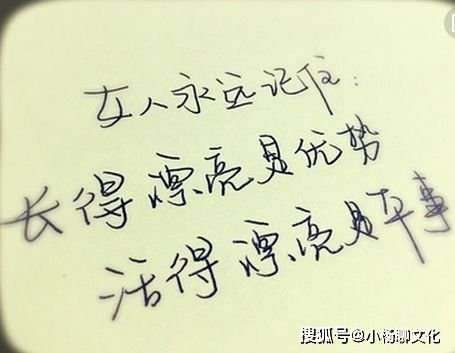 女人永远记住:
长得漂亮是优势
活得漂亮是本事
搜狐号@小杨聊文化